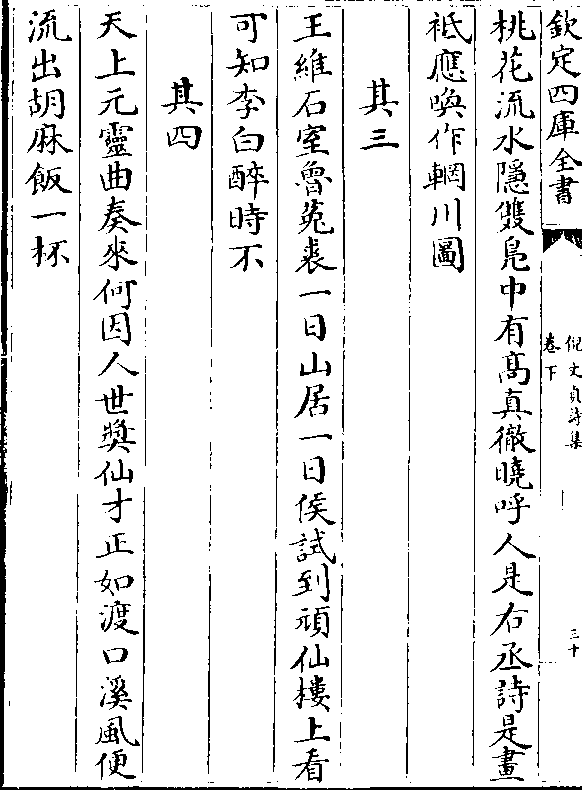 欽定四庫全書
倪文貞詩集
卷下
三十
桃花流水隱雙鳬中有髙真徹曉呼人是右丞詩是畫
秖應喚作輞川圖
其三
王維石室魯菟裘一日山居一日侯試到頑仙樓上看
可知李白醉時不
其四
天上元靈曲奏來何因人世奬仙才正如渡口溪風便
流出胡麻飯一杯